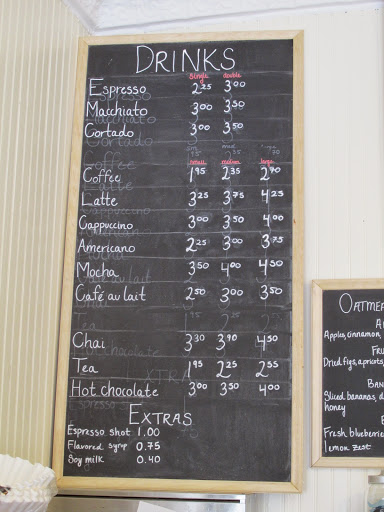 DRINKS
single double
Espresso 2.25 3.00
Macchiato 3.00 3.50
Cortado 3.00 3.50
small medium large
Coffee 1.95 2.35 2.70
Latte 3.25 3.75 4.25
Cappuccino 3.00 3.50 4.00
Americano 2.25 3.00 3.75
Mocha 3.50 4.00 4.50
Café au lait 2.50 3.00 3.50
Chai 3.30 3.90 4.50
Tea 1.95 2.25 2.55
Hot chocolate 3.00 3.50 4.00
EXTRAS
Espresso shot 1.00
Flavored syrup 0.75
Soy milk 0.40
OATMEA
A
Apples, cinnamon,
FRU
Dried figs, apricots,
BAN
Sliced bananas, d
honey
Fresh blueberrie
lemon zest